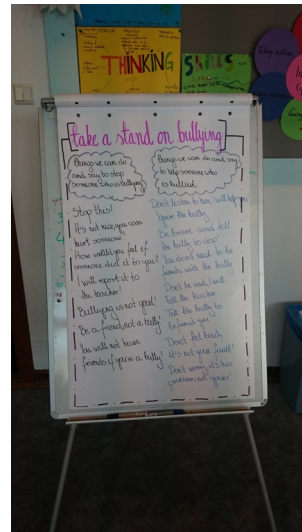 THINKING SKILLS
take a stand on bullying
things we can do
and say to stop
someone who is bullying
things we can do and say
to help someone who
is bullied
Stop this!
It's not nice, you can
hurt someone!
How would you feel if
someone did it to you?
I will report it to
the teacher!
Bullying is not good!
Be a friend, not a bully!
You will not have
friends if you're a bully!
Don't listen to him, I will help you
Ignore the bully
Be brave and tell
the bully to stop!
You don't need to be
friends with the bully
Don't be sad, I will
tell the teacher
Tell the bully to
be friend you
Don't feel bad,
it's not your fault!
Don't worry, it's his
problem not yours!